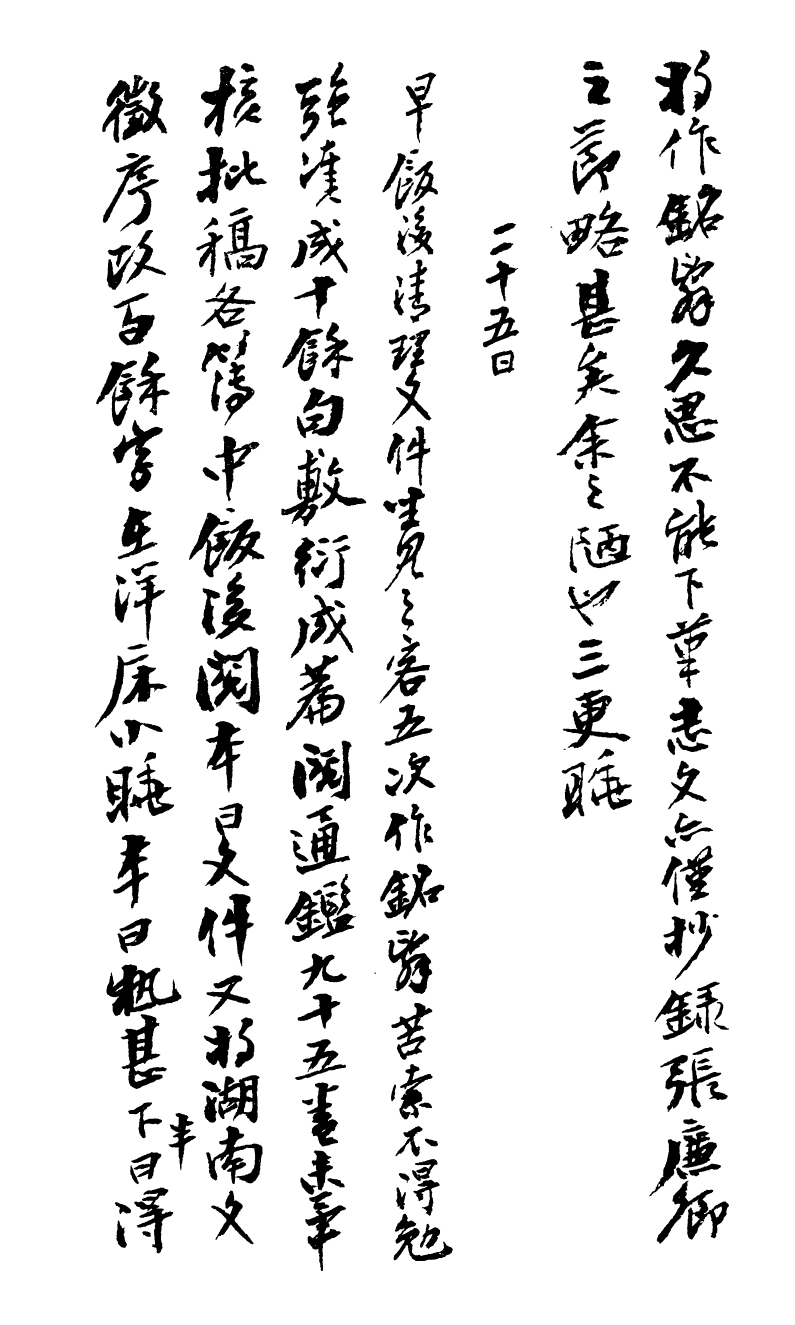 將作銘辭久思不能下筆志文亦僅抄錄張廉卿
之節略甚矣余之陋也三更睡
二十五日
早飯後清理文件坐見之客五次作銘辭苦索不得勉
強湊成十餘句敷衍成篇閱通鑑九十五卷未畢
核批稿各簿中飯後閱本日文件又將湖南文
徵序改百餘字在洋床小睡本日熱甚下半日得